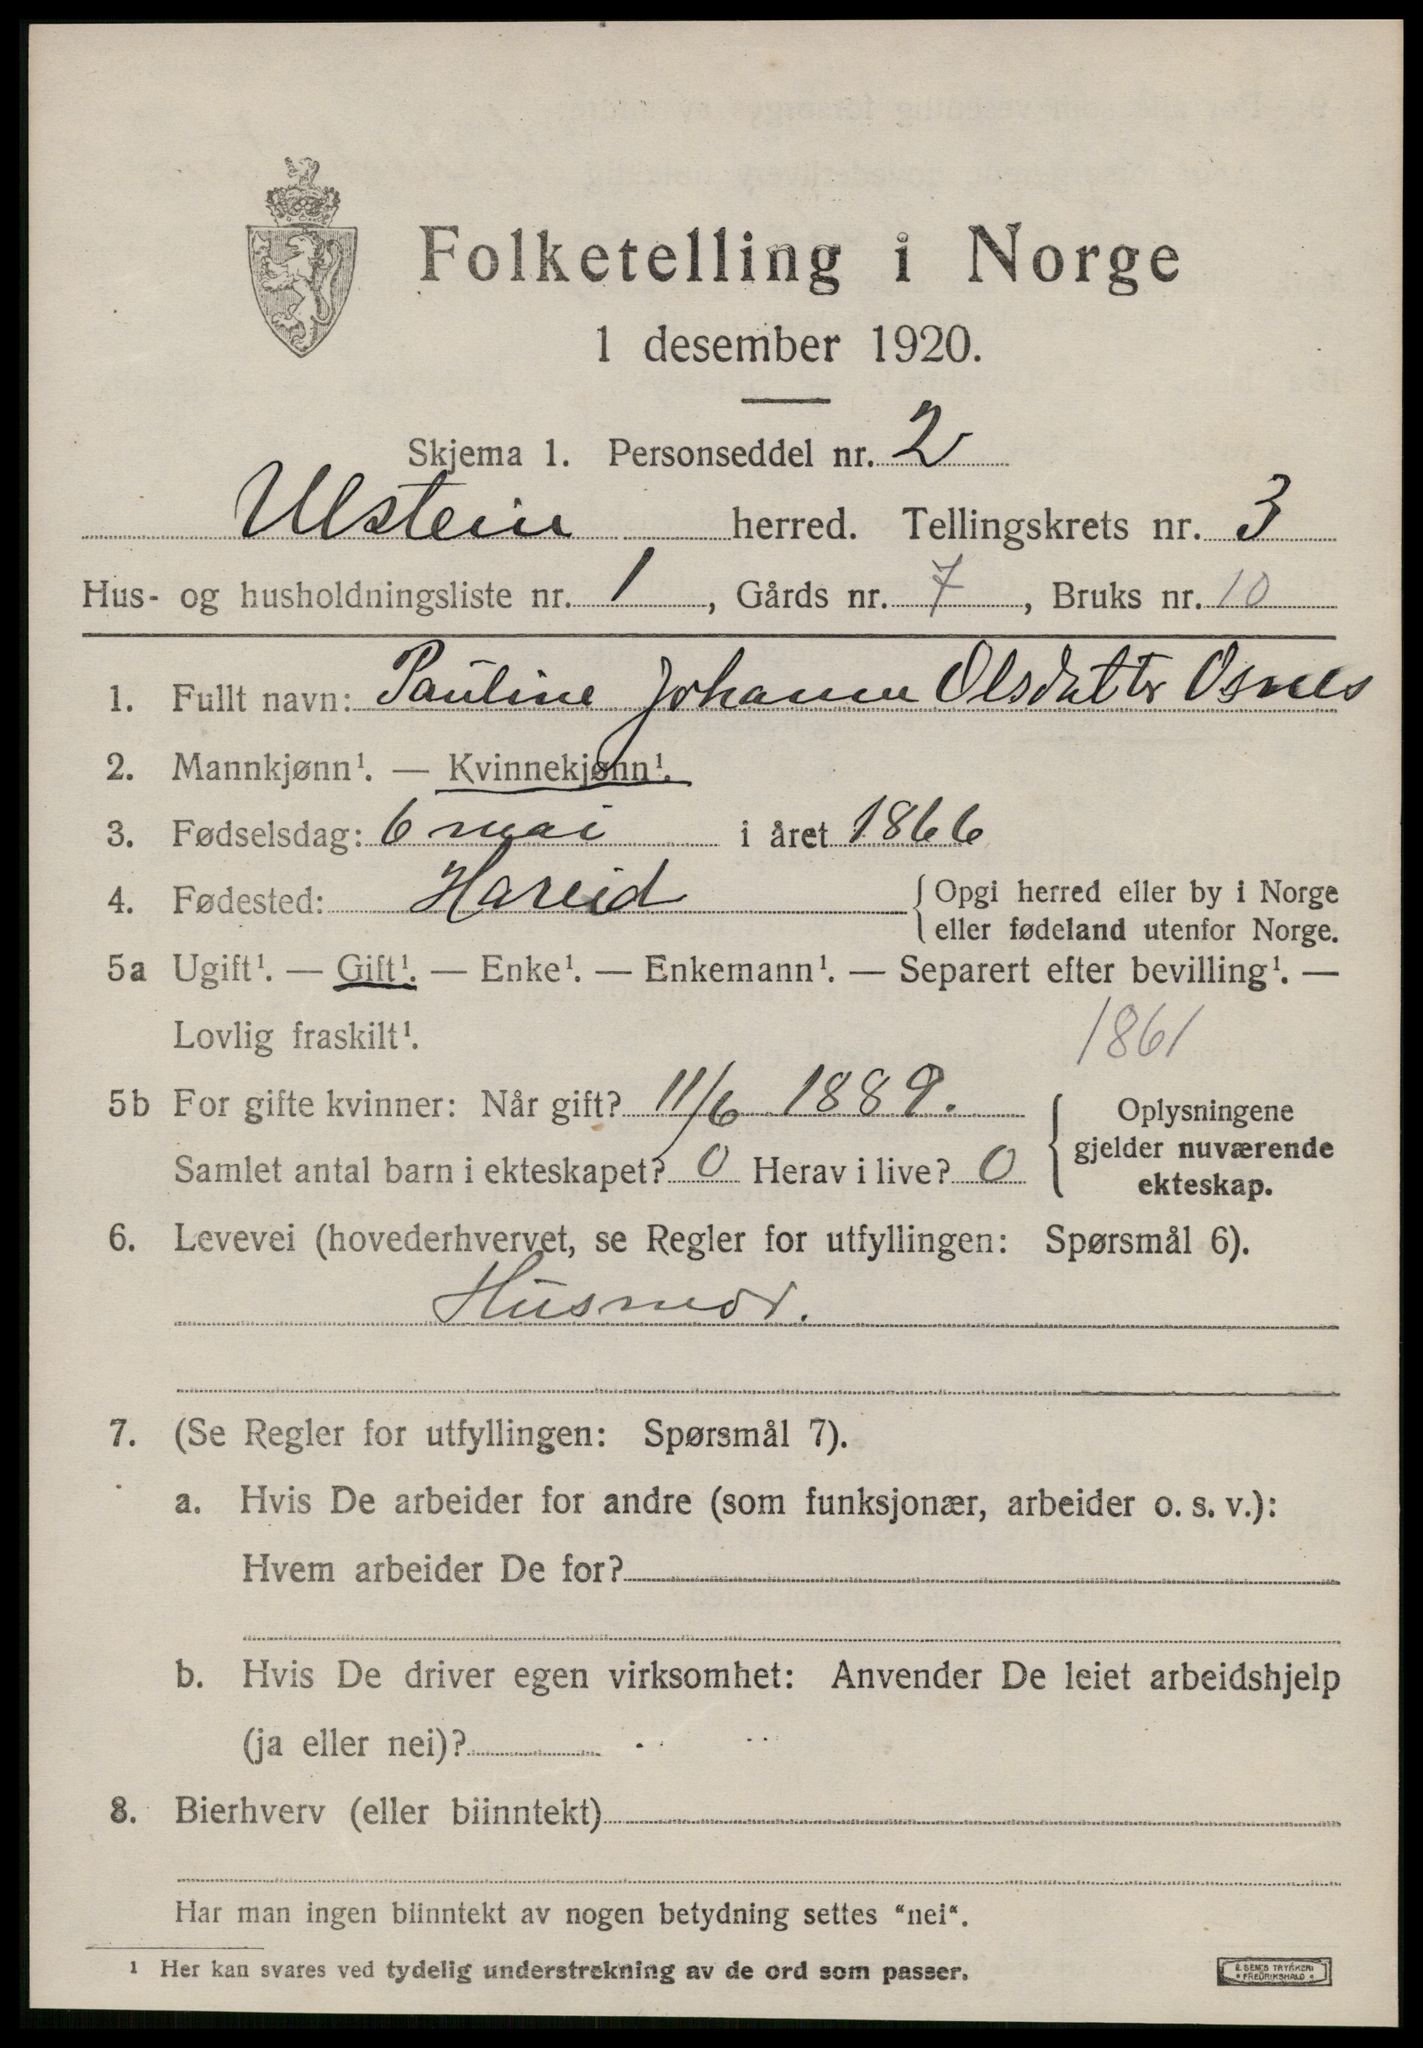 Folketelling i Norge
1 desember 1920.
Skjema 1. Personseddel nr. 2
Ulstein herred. Tellingskrets nr. 3
Hus- og husholdningsliste nr. 1, Gårds nr. 7, Bruks nr. 10
1. Fullt navn: Pauline Johanne Olsdatter Osnes
2. Mannkjønn¹. — Kvinnekjønn¹.
3. Fødselsdag: 6 mai i året 1866
4. Fødested: Hareid { Opgi herred eller by i Norge
eller fødeland utenfor Norge.
5a Ugift¹. — Gift¹. — Enke¹. — Enkemann¹. — Separert efter bevilling¹. —
Lovlig fraskilt¹. 1861
5b For gifte kvinner: Når gift? 11/6 1889. { Oplysningene
gjelder nuværende
Samlet antal barn i ekteskapet? 0 Herav i live? 0
ekteskap.
6. Levevei (hovederhvervet, se Regler for utfyllingen: Spørsmål 6).
Husmor.
7. (Se Regler for utfyllingen: Spørsmål 7).
a. Hvis De arbeider for andre (som funksjonær, arbeider o. s. v.):
Hvem arbeider De for?
b. Hvis De driver egen virksomhet: Anvender De leiet arbeidshjelp
(ja eller nei)?
8. Bierhverv (eller biinntekt)
Har man ingen biinntekt av nogen betydning settes "nei".
¹ Her kan svares ved tydelig understrekning av de ord som passer.
E. SEM'S TRYKKERI
FREDRIKSHALD